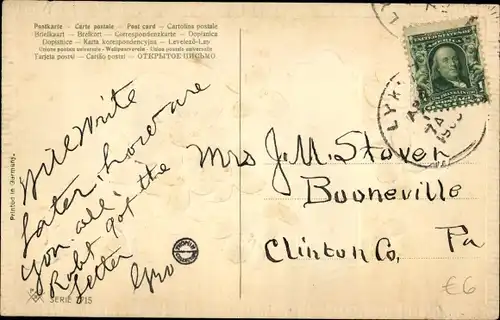 Postkarte — Carte postale — Post card — Cartolina postale
Brevkort — Correspondenzkarte — Dopisnica
Dopisnice — Karta korespondencyjna — Levelező-Lap
Unione postale universale — Weltpostverein — Union postale universelle
Tarjeta postal — Cartão postal — ОТКРЫТОЕ ПИСЬМО
Will Write
later, how are
you all,
Robt got the
letter
Printed in Germany.
SERIE 715
UNITED STATES OF AMERICA
LYK
7 A
LY
Mrs J. M. Stover
Booneville
Clinton Co, Pa
€6